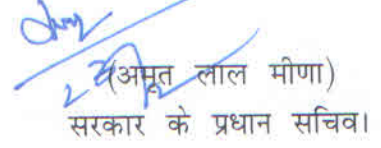 (अमृत लाल मीणा)
सरकार के प्रधान सचिव।